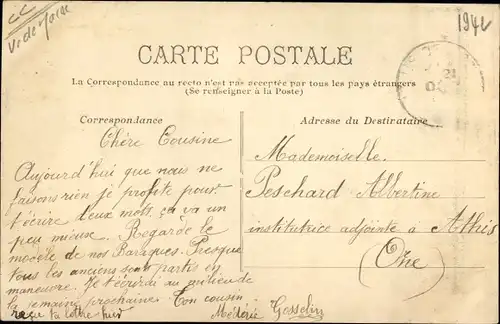 Vie de Caserne
1942
CARTE POSTALE
La Correspondance au recto n'est pas acceptée par tous les pays étrangers
(Se renseigner à la Poste)
Correspondance
Adresse du Destinataire
Chère Cousine
Aujourd'hui que nous ne
faisons rien je profite pour
t'écrire deux mots, ça va un
peu mieuse. Regarde le
modèle de nos Baraques. Presque
tous les anciens sont partis en
manœuvre. Je t'écrirai au milieu de
la semaine prochaine. Ton cousin
reçu ta lettre hier
Médéric Gosselin
Mademoiselle
Peschard Albertine
institutrice adjointe à Athis
(Orne)